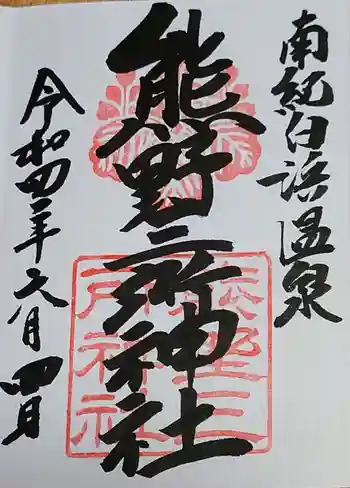 南紀白浜温泉
熊野三所神社
令和四年六月四日
熊野三
所神社